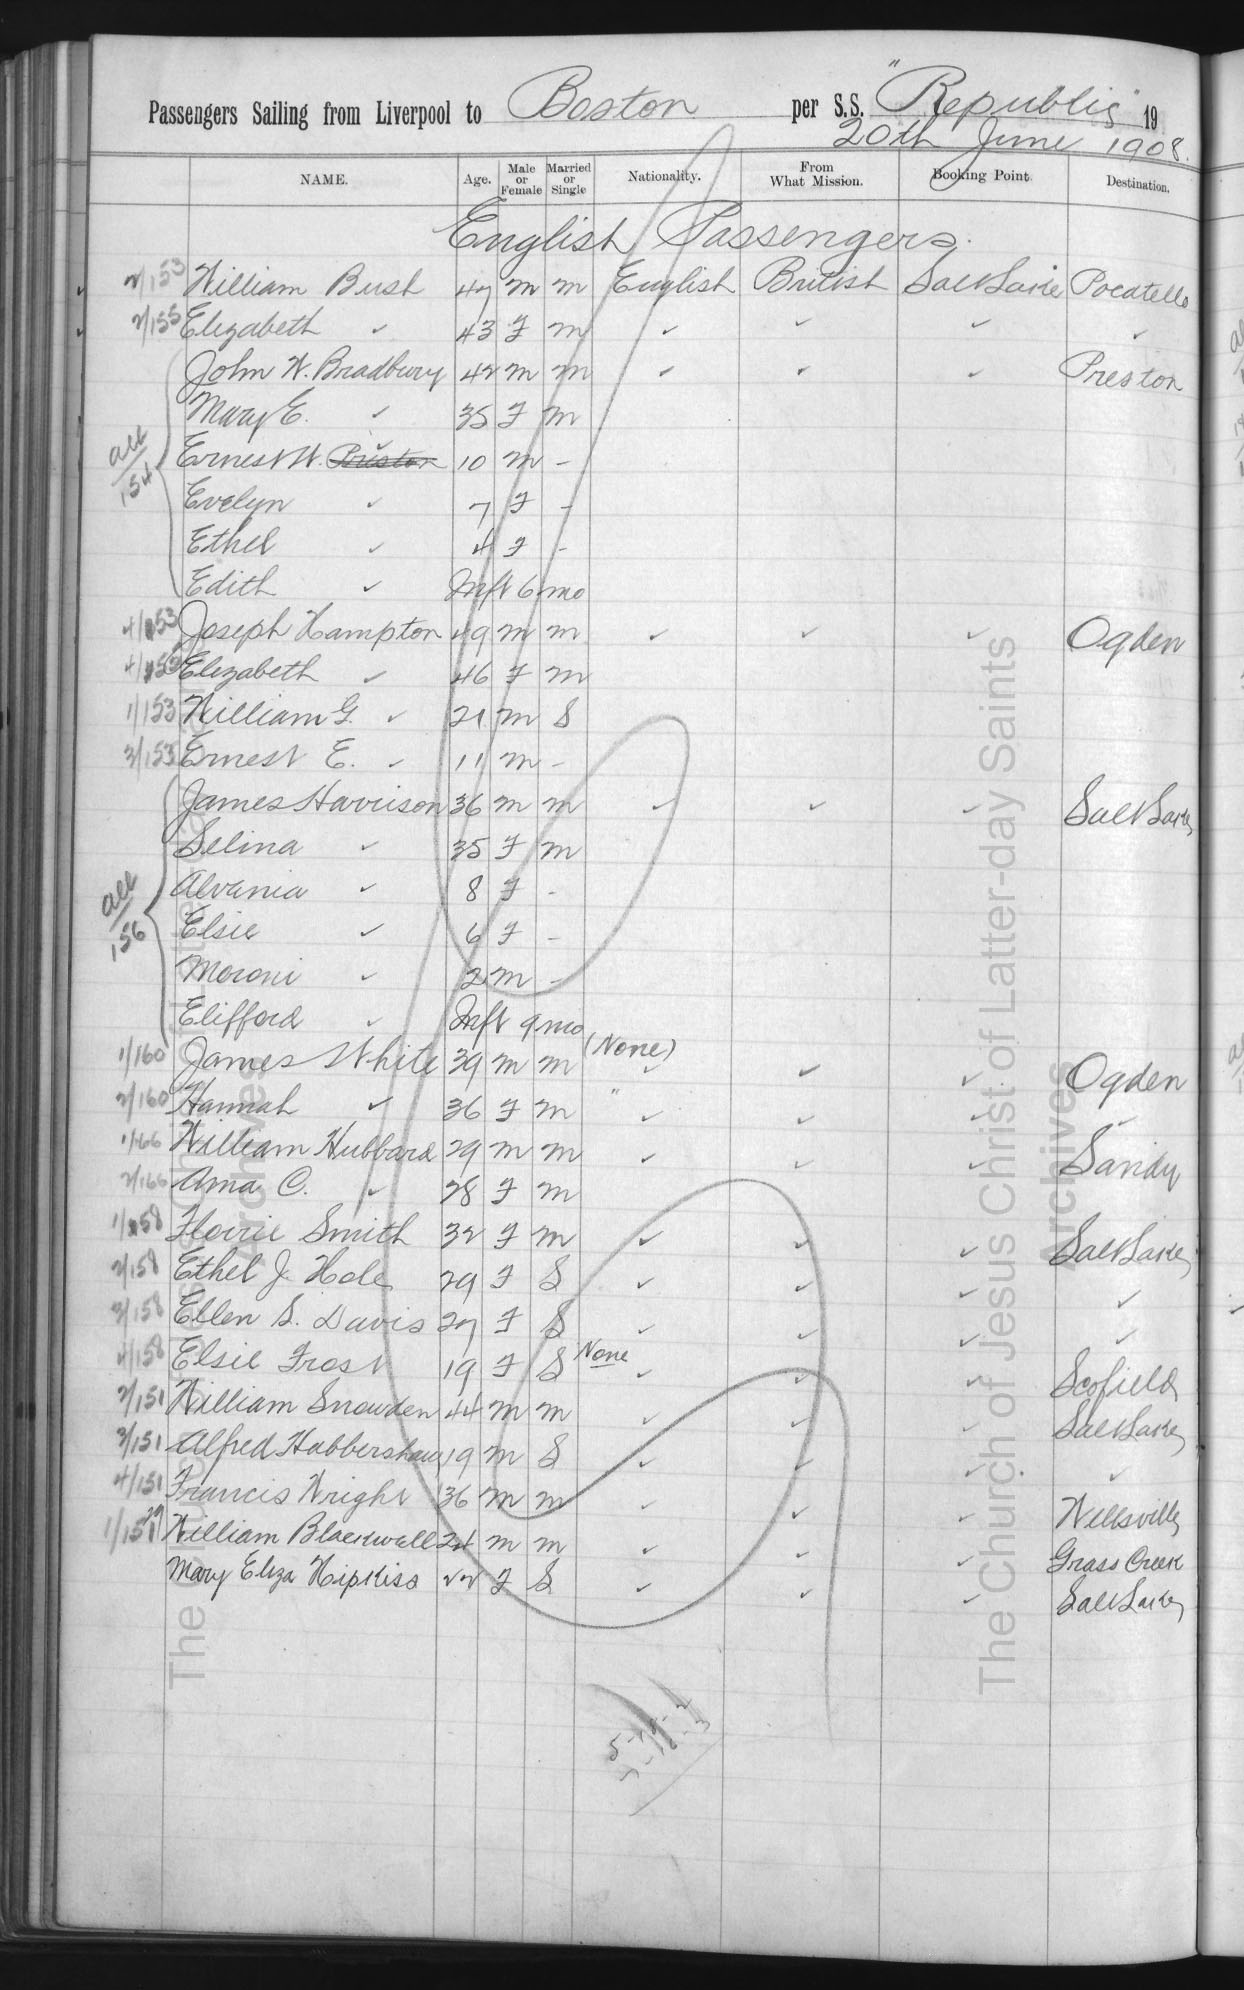 Passengers Sailing from Liverpool to Boston per S.S. "Republic" 19
20th June 1908.
NAME. Age. Male or Female Married or Single Nationality. From What Mission. Booking Point. Destination.
English Passengers.
2/153 William Bush 47 m m English British Salt Lake Pocatello
2/155 Elizabeth ✓ 43 F m ✓ ✓ ✓ ✓
John W. Bradbury 42 m m ✓ ✓ ✓ Preston
Mary E. ✓ 35 F m
all 154 Ernest W. Preston ✓ 10 m -
Evelyn ✓ 7 F -
Ethel ✓ 4 F -
Edith ✓ Inft 6 mo
4/153 Joseph Hampton 49 m m ✓ ✓ ✓ Ogden
4/153 Elizabeth ✓ 46 F m
1/153 William G. ✓ 21 m S
3/153 Ernest E. ✓ 11 m -
James Harrison 36 m m ✓ ✓ ✓ Salt Lake
Selina ✓ 35 F m
Alvania ✓ 8 F -
all 156 Elsie ✓ 6 F -
Moroni ✓ 2 m -
Elifford ✓ Inft 9 mo
1/160 James White 39 m m (None) ✓ ✓ ✓ Ogden
2/160 Hannah ✓ 36 F m " ✓ ✓ ✓ ✓
1/166 William Hubbard 29 m m ✓ ✓ ✓ Sandy
2/166 Ama C. ✓ 28 F m
1/158 Florrie Smith 32 F m ✓ ✓ ✓ Salt Lake
2/158 Ethel J. Hole 29 F S ✓ ✓ ✓ ✓
3/158 Ellen S. Davis 27 F S ✓ ✓ ✓ ✓
4/158 Elsie Frost 19 F S None ✓ ✓ ✓ Scofield
2/151 William Snowden 44 m m ✓ ✓ ✓ Salt Lake
3/151 Alfred Habbershaw 19 m S ✓ ✓ ✓ ✓
4/151 Francis Wright 36 m m ✓ ✓ ✓ Wellsville
1/151 William Blackwell 24 m m ✓ ✓ ✓ Grass Creek
Mary Eliza Hipkiss 22 F S ✓ ✓ ✓ Salt Lake
5-18-2
7-18-3
The Church of Jesus Christ of Latter-day Saints
Archives